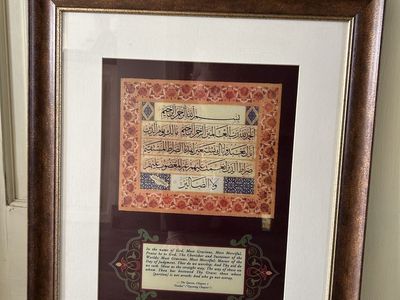 بسم الله الرحمن الرحيم
الحمد لله رب العالمين الرحمن الرحيم مالك يوم الدين
إياك نعبد وإياك نستعين اهدنا الصراط المستقيم
صراط الذين أنعمت عليهم غير المغضوب عليهم
ولا الضالين
In the name of God, Most Gracious, Most Merciful.
Praise be to God, The Cherisher and Sustainer of the
Worlds: Most Gracious, Most Merciful: Master of the
Day of Judgment. Thee do we worship, And Thy aid do
we seek. Show us the straight way. The way of those on
whom Thou has bestowed Thy Grace, those whose
(portion) is not wrath. And who go not astray.
The Quran, Chapter 1
"Fatiha" (Opening Chapter)